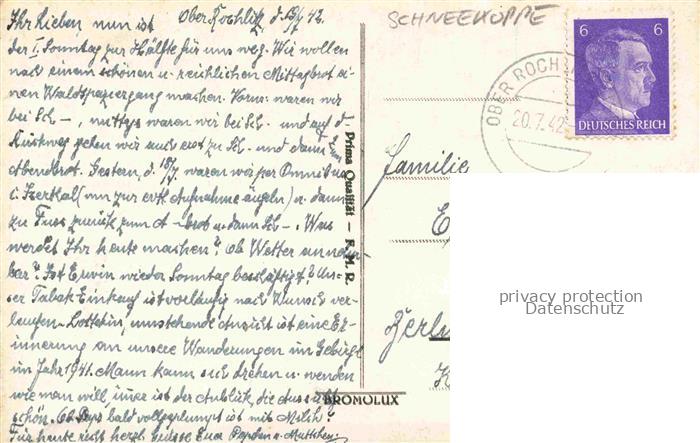 Ober Rochlitz, d. 19/7. 42.
Ihr Lieben nun ist
der I. Sonntag zur Hälfte für uns weg. Wir wollen
nach einem schönen u. reichlichen Mittagbrot ei-
nen Waldspaziergang machen. Vorm. waren wir
bei Sch –, mittags waren wir bei Sch. und auf d.
Rückweg gehen wir auch erst zu Sch – und dann zum
Abendbrot. Gestern, d. 18/7. waren wir per Omnibus
i. Iserthal (um zur evtl. Aufnahme) u. dann
zu Fuss zurück zum A –brot u. dann Sch –. Was
werdet Ihr heute machen? Ob Wetter wunder-
bar? Ist Erwin wieder Sonntag beschäftigt? Un-
ser Tabak-Einkauf ist vorläufig nach Wunsch ver-
laufen. Lottchen, umstehende Ansicht ist eine Er-
innerung an unsere Wanderungen im Gebirge
im Jahr 1941. Mann kann sich drehen u. wenden
wie man will, immer ist der Anblick, die Aussicht
schön. Ob Paps bald vollgeplumpst ist mit Milch?
Für heute recht herzl. Grüsse Euch Papchen u. Muttchen.
Prima Qualität – F. M. R.
BROMOLUX
SCHNEEKOPPE
6 6
DEUTSCHES REICH
OBER ROCH
20.7.42
Familie
E
Berlin
privacy protection
Datenschutz